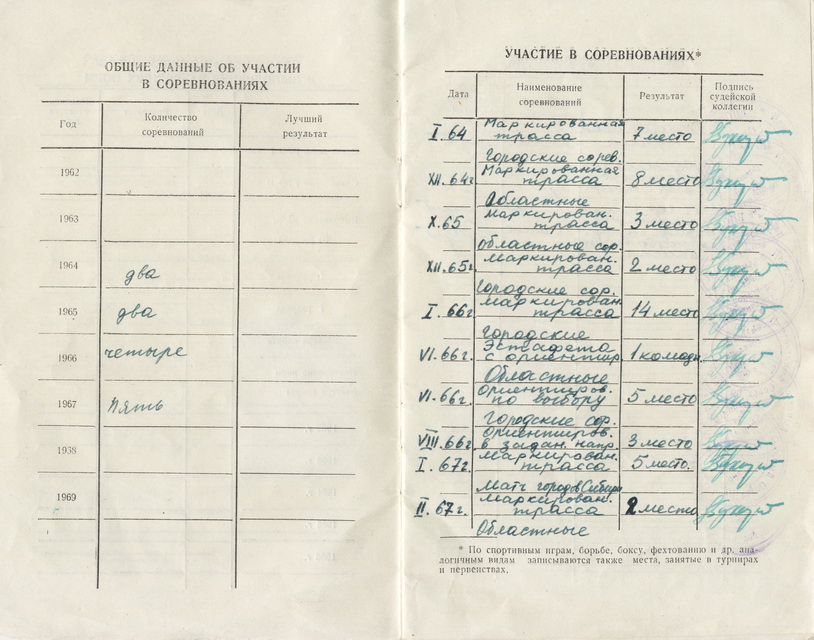 ОБЩИЕ ДАННЫЕ ОБ УЧАСТИИ
В СОРЕВНОВАНИЯХ
Год Количество соревнований Лучший результат
1962
1963
1964 два
1965 два
1966 четыре
1967 пять
1958
1969
УЧАСТИЕ В СОРЕВНОВАНИЯХ*
Дата Наименование соревнований Результат Подпись судейской коллегии
I. 64 Маркированная трасса 7 место
Городские сорев.
XII. 64г. Маркированная трасса 8 место
Областные
X. 65 Маркирован. трасса 3 место
областные сор.
XII. 65г. маркирован. трасса 2 место
Городские сор.
I. 66г маркирован. трасса 14 место
Городские
VI. 66г. Эстафета с ориентир 1 команд
Областные
VI. 66г. ориентиров. по выбору 5 место
Городские сор.
VIII. 66г ориентиров. в задан. напр. 3 место
I. 67г. маркирован. трасса 5 место.
Матч городов Сибири
II. 67г. маркирован. трасса 2 место
Областные
* По спортивным играм, борьбе, боксу, фехтованию и др. ана-
логичным видам записываются также места, занятые в турнирах
и первенствах.